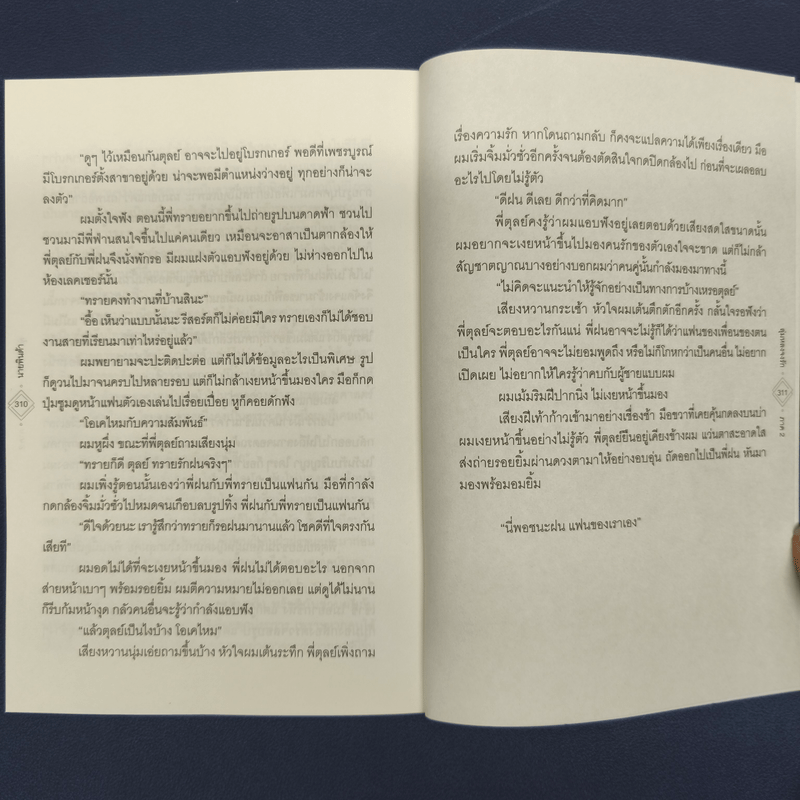 "ดูๆ ไว้เหมือนกันตุลย์ อาจจะไปอยู่โบรกเกอร์ พอดีที่เพชรบูรณ์
มีโบรกเกอร์ตั้งสาขาอยู่ด้วย น่าจะพอมีตำแหน่งว่างอยู่ ทุกอย่างก็น่าจะ
ลงตัว"
ผมตั้งใจฟัง ตอนนี้พี่ทรายอยากขึ้นไปถ่ายรูปบนดาดฟ้า ชวนไป
ชวนมามีพี่ฟ่านสนใจขึ้นไปแค่คนเดียว เหมือนจะอาสาเป็นตากล้องให้
พี่ตุลย์กับพี่ฝนจึงนั่งพักรอ มีผมแฝงตัวแอบฟังอยู่ด้วย ไม่ห่างออกไปใน
ห้องเลคเชอร์นั้น
"ทรายคงทำงานที่บ้านสินะ"
"อื้อ เห็นว่าแบบนั้นนะ รีสอร์ตก็ไม่ค่อยมีใคร ทรายเองก็ไม่ได้ชอบ
งานสายที่เรียนมาเท่าไหร่อยู่แล้ว"
ผมพยายามจะปะติดปะต่อ แต่ก็ไม่ได้ข้อมูลอะไรเป็นพิเศษ รูป
ก็ดูวนไปมาจนครบไปหลายรอบ แต่ก็ไม่กล้าเงยหน้าขึ้นมองใคร มือก็กด
ปุ่มซูมดูหน้าแฟนตัวเองเล่นไปเรื่อยเปื่อย หูก็คอยดักฟัง
"โอเคไหมกับความสัมพันธ์"
ผมหูผึ่ง ขณะที่พี่ตุลย์ถามเสียงนุ่ม
"ทรายก็ดี ตุลย์ ทรายรักฝนจริงๆ"
ผมเพิ่งรู้ตอนนั้นเองว่าพี่ฝนกับพี่ทรายเป็นแฟนกัน มือที่กำลัง
กดกล้องจิ้มมั่วซั่วไปหมดจนเกือบลบรูปทิ้ง พี่ฝนกับพี่ทรายเป็นแฟนกัน
"ดีใจด้วยนะ เรารู้สึกว่าทรายก็รอฝนมานานแล้ว โชคดีที่ใจตรงกัน
เสียที"
ผมอดไม่ได้ที่จะเงยหน้าขึ้นมอง พี่ฝนไม่ได้ตอบอะไร นอกจาก
ส่ายหน้าเบาๆ พร้อมรอยยิ้ม ผมตีความหมายไม่ออกเลย แต่ดูได้ไม่นาน
ก็รีบก้มหน้างุด กลัวคนอื่นจะรู้ว่ากำลังแอบฟัง
"แล้วตุลย์เป็นไงบ้าง โอเคไหม"
เสียงหวานนุ่มเอ่ยถามขึ้นบ้าง หัวใจผมเต้นระทึก พี่ตุลย์เพิ่งถาม
นายพินต้า
310
เรื่องความรัก หากโดนถามกลับ ก็คงจะแปลความได้เพียงเรื่องเดียว มือ
ผมเริ่มจิ้มมั่วซั่วอีกครั้งจนต้องตัดสินใจกดปิดกล้องไป ก่อนที่จะเผลอลบ
อะไรไปโดยไม่รู้ตัว
"ดีฝน ดีเลย ดีกว่าที่คิดมาก"
พี่ตุลย์คงรู้ว่าผมแอบฟังอยู่เลยตอบด้วยเสียงสดใสขนาดนั้น
ผมอยากจะเงยหน้าขึ้นไปมองคนรักของตัวเองใจจะขาด แต่ก็ไม่กล้า
สัญชาตญาณบางอย่างบอกผมว่าคนคู่นั้นกำลังมองมาทางนี้
"ไม่คิดจะแนะนำให้รู้จักอย่างเป็นทางการบ้างเหรอตุลย์"
เสียงหวานกระเซ้า หัวใจผมเต้นตึกตักอีกครั้ง กลั้นใจรอฟังว่า
พี่ตุลย์จะตอบอะไรกันแน่ พี่ฝนอาจจะไม่รู้ก็ได้ว่าแฟนของเพื่อนของตน
เป็นใคร พี่ตุลย์อาจจะไม่ยอมพูดถึง หรือไม่ก็โกหกว่าเป็นคนอื่น ไม่อยาก
เปิดเผย ไม่อยากให้ใครรู้ว่าคบกับผู้ชายแบบผม
ผมเม้มริมฝีปากนิ่ง ไม่เงยหน้าขึ้นมอง
เสียงฝีเท้าก้าวเข้ามาอย่างเชื่องช้า มือขวาที่เคยคุ้นกดลงบนบ่า
ผมเงยหน้าขึ้นอย่างไม่รู้ตัว พี่ตุลย์ยืนอยู่เคียงข้างผม แว่นตาสะอาดใส
ส่งถ่ายรอยยิ้มผ่านดวงตามาให้อย่างอบอุ่น ถัดออกไปเป็นพี่ฝน หันมา
มองพร้อมอมยิ้ม
"นี่พอชนะฝน แฟนของเราเอง"
311
ภาค 2